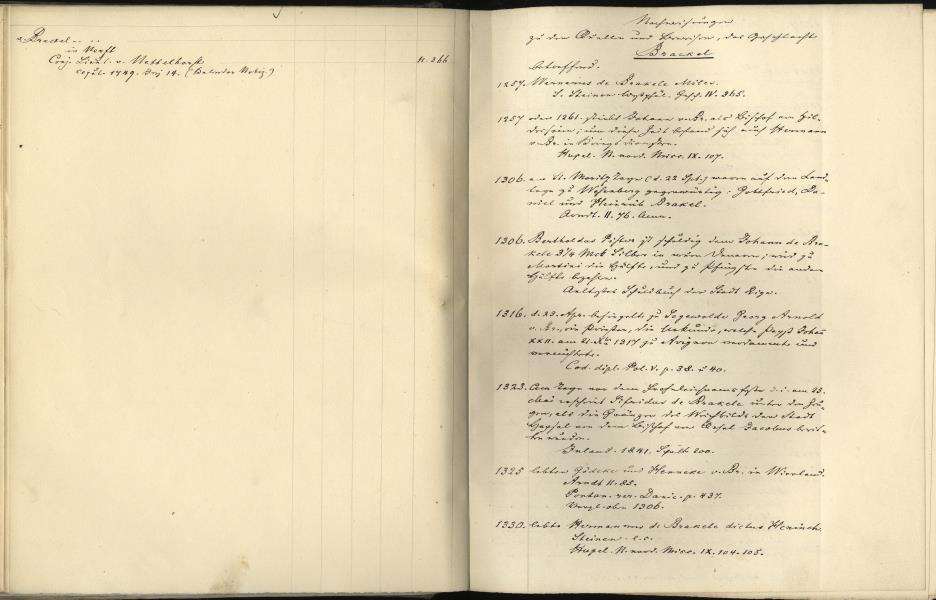 v. Brackel
in Werst
Conj. Lieut. v. Nettelhorst
copul. 1749. Dez 14. (Bathensche Notiz.) n. 266
Nachweisungen
zu den Quellen und Beweisen, das Geschlecht
Brackel
betreffend.
1257. Wernerius de Brakele Miles.
S. Steinen Westphäl. Gesch. IV. 365.
1257 oder 1261. stirbt Johann v. Br. als Bischof von Hil-
desheim; um diese Zeit befand sich auch Hermann
v. Br. in
Hupel. N. nord. Misc. IX. 107.
1306. am St. Moritz Tage (d. 22 Spt.) waren auf dem Land-
tage zu Wesenberg gegenwärtig: Gottfried, Da-
niel und Heinrich Brakel.
Arndt. II. 76. Anm.
1306. Bertholdus Pistor ist schuldig dem Johann de Bra-
kele 3 1/4 Mck Silber ; wird zu
Martini die Hälfte, und zu Pfingsten die andre
Hälfte bezahlen.
Aeltestes Schuldbuch der Stadt Riga.
1316. d. 23. Apr. besiegelt zu Segewolde Georg Arnold
v. Br., ein Priester, die Urkunde, welche Papst Johan
XXII. am 1317 zu Avignon verdammte und
vernichtete.
Cod. dipl. Pol. V. p. 38. u 40.
1323. Am Tage vor dem Frohnleichnamsfeste d. i. am 25.
Mai erscheint Sifridus de Brakele unter den Zeu-
gen, als die Gränzen des Weichbilds der Stadt
Hapsal von dem Bischof von Oesel Jacobus berit-
ten wurden.
Inland. 1841. Spalte 200.
1325 lebten Gödeke und Henneke v. Br. in Wierland.
Arndt II. 85.
Pontan. rer. Danic. p. 437.
Vergl. oben 1306.
1330. lebte Hermannus de Brakele dictus
Steinen l. c.
Hupel. N. nord. Misc. IX. 104. 105.